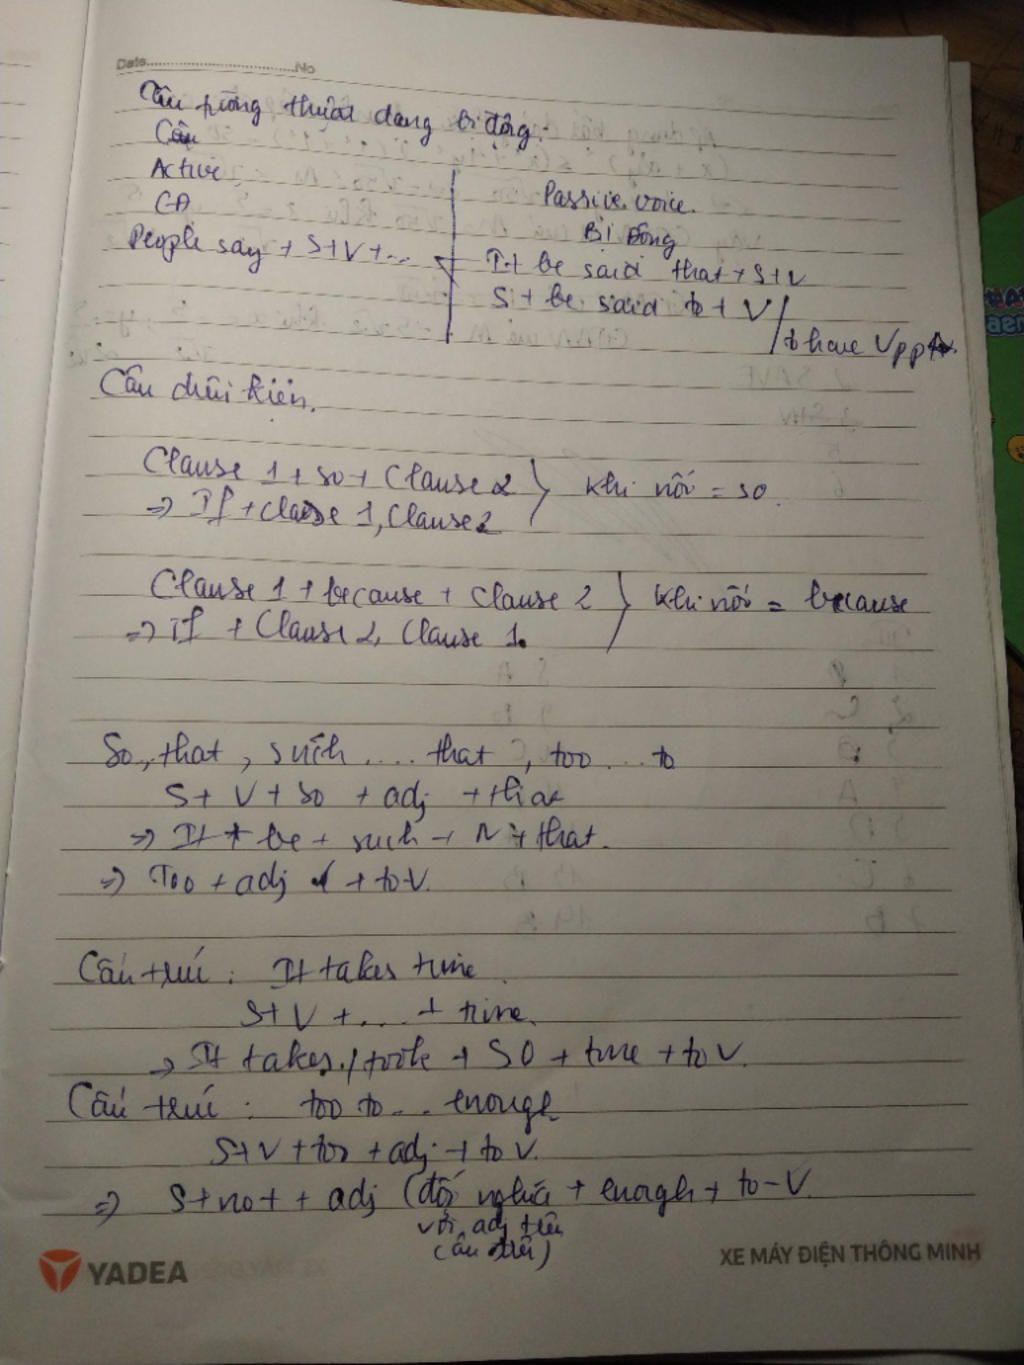 Date.....................No
Câu tường thuật dạng bị động:
Câu
Active
CĐ
Passive voice.
Bị Động
People say + S+V+...
It + be said that + S+V
S + be said to + V/
to have Vpp
Câu điều kiện.
Clause 1 + so + Clause 2 } khi nối = so
=> If + clause 1, Clause 2
Clause 1 + because + Clause 2 } khi nối = because
=> If + Clause 2, Clause 1.
So, that, such .... that, too ... to
S + V + so + adj + that
=> It + be + such + N + that.
=> Too + adj + to-V.
Cấu trúc: It takes time.
S+V +... + time.
-> It takes / took + SO + time + to V.
Cấu trúc: too to ... enough
S+V + too + adj + to V.
=> S + not + adj (đối nghĩa + enough + to-V.
với adj trên
(câu trên)
YADEA
XE MÁY ĐIỆN THÔNG MINH